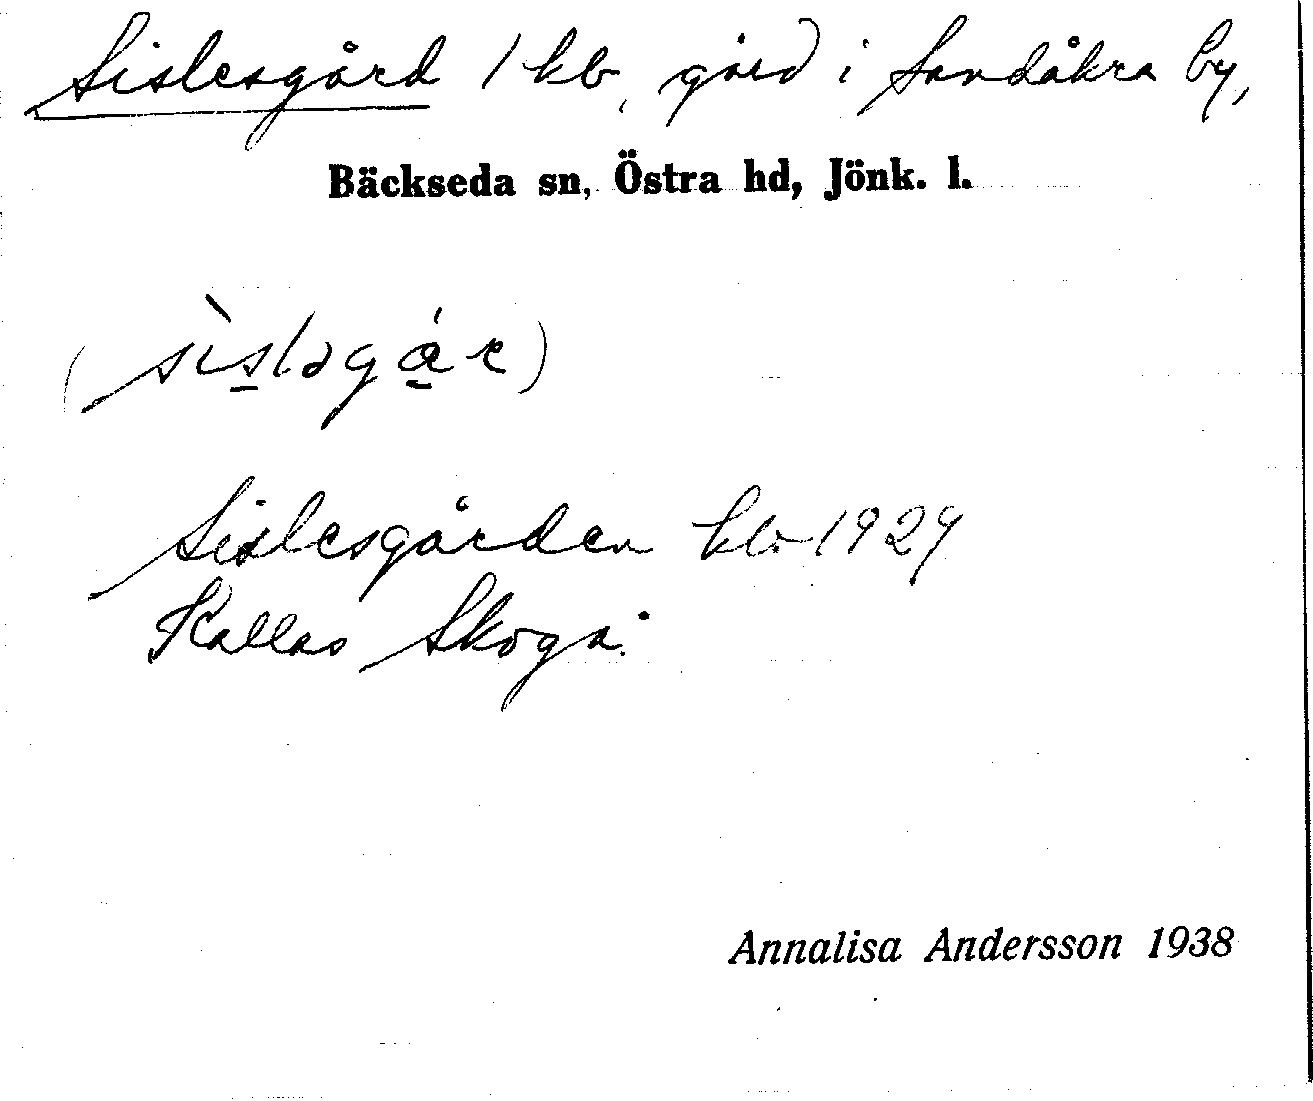 Sislesgård 1 kb, gård i Sandåkra by,
Bäckseda sn, Östra hd, Jönk. l.
(sìsləgár)
Sislesgården kb 1929
Kallas Skoga.
Annalisa Andersson 1938